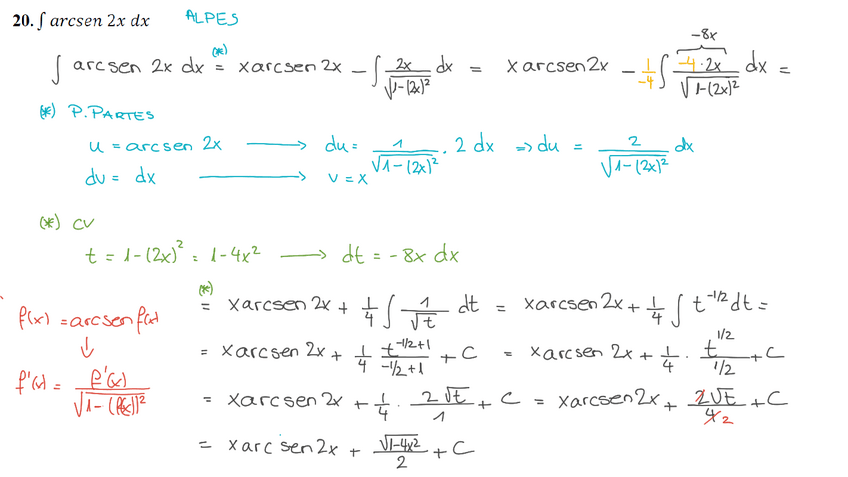 20. ∫ arcsen 2x dx ALPES
∫ arcsen 2x dx =(*) x arcsen 2x − ∫ 2x/√(1−(2x)²) dx = x arcsen 2x − 1/−4 ∫ −4·2x/√(1−(2x)²) dx =
−8x
(*) P.PARTES
u = arcsen 2x ⟶ du = 1/√(1−(2x)²) · 2 dx ⇒ du = 2/√(1−(2x)²) dx
dv = dx ⟶ v = x
(*) CV
t = 1−(2x)² = 1−4x² ⟶ dt = −8x dx
(*) = x arcsen 2x + 1/4 ∫ 1/√t dt = x arcsen 2x + 1/4 ∫ t^(−1/2) dt =
= x arcsen 2x + 1/4 t^(−1/2+1)/(−1/2+1) + C = x arcsen 2x + 1/4 · t^(1/2)/(1/2) + C
= x arcsen 2x + 1/4 · 2√t/1 + C = x arcsen 2x + 2√t/4 2 + C
= x arcsen 2x + √(1−4x²)/2 + C
f(x) = arcsen f(x)
↓
f'(x) = f'(x)/√(1−(f(x))²)